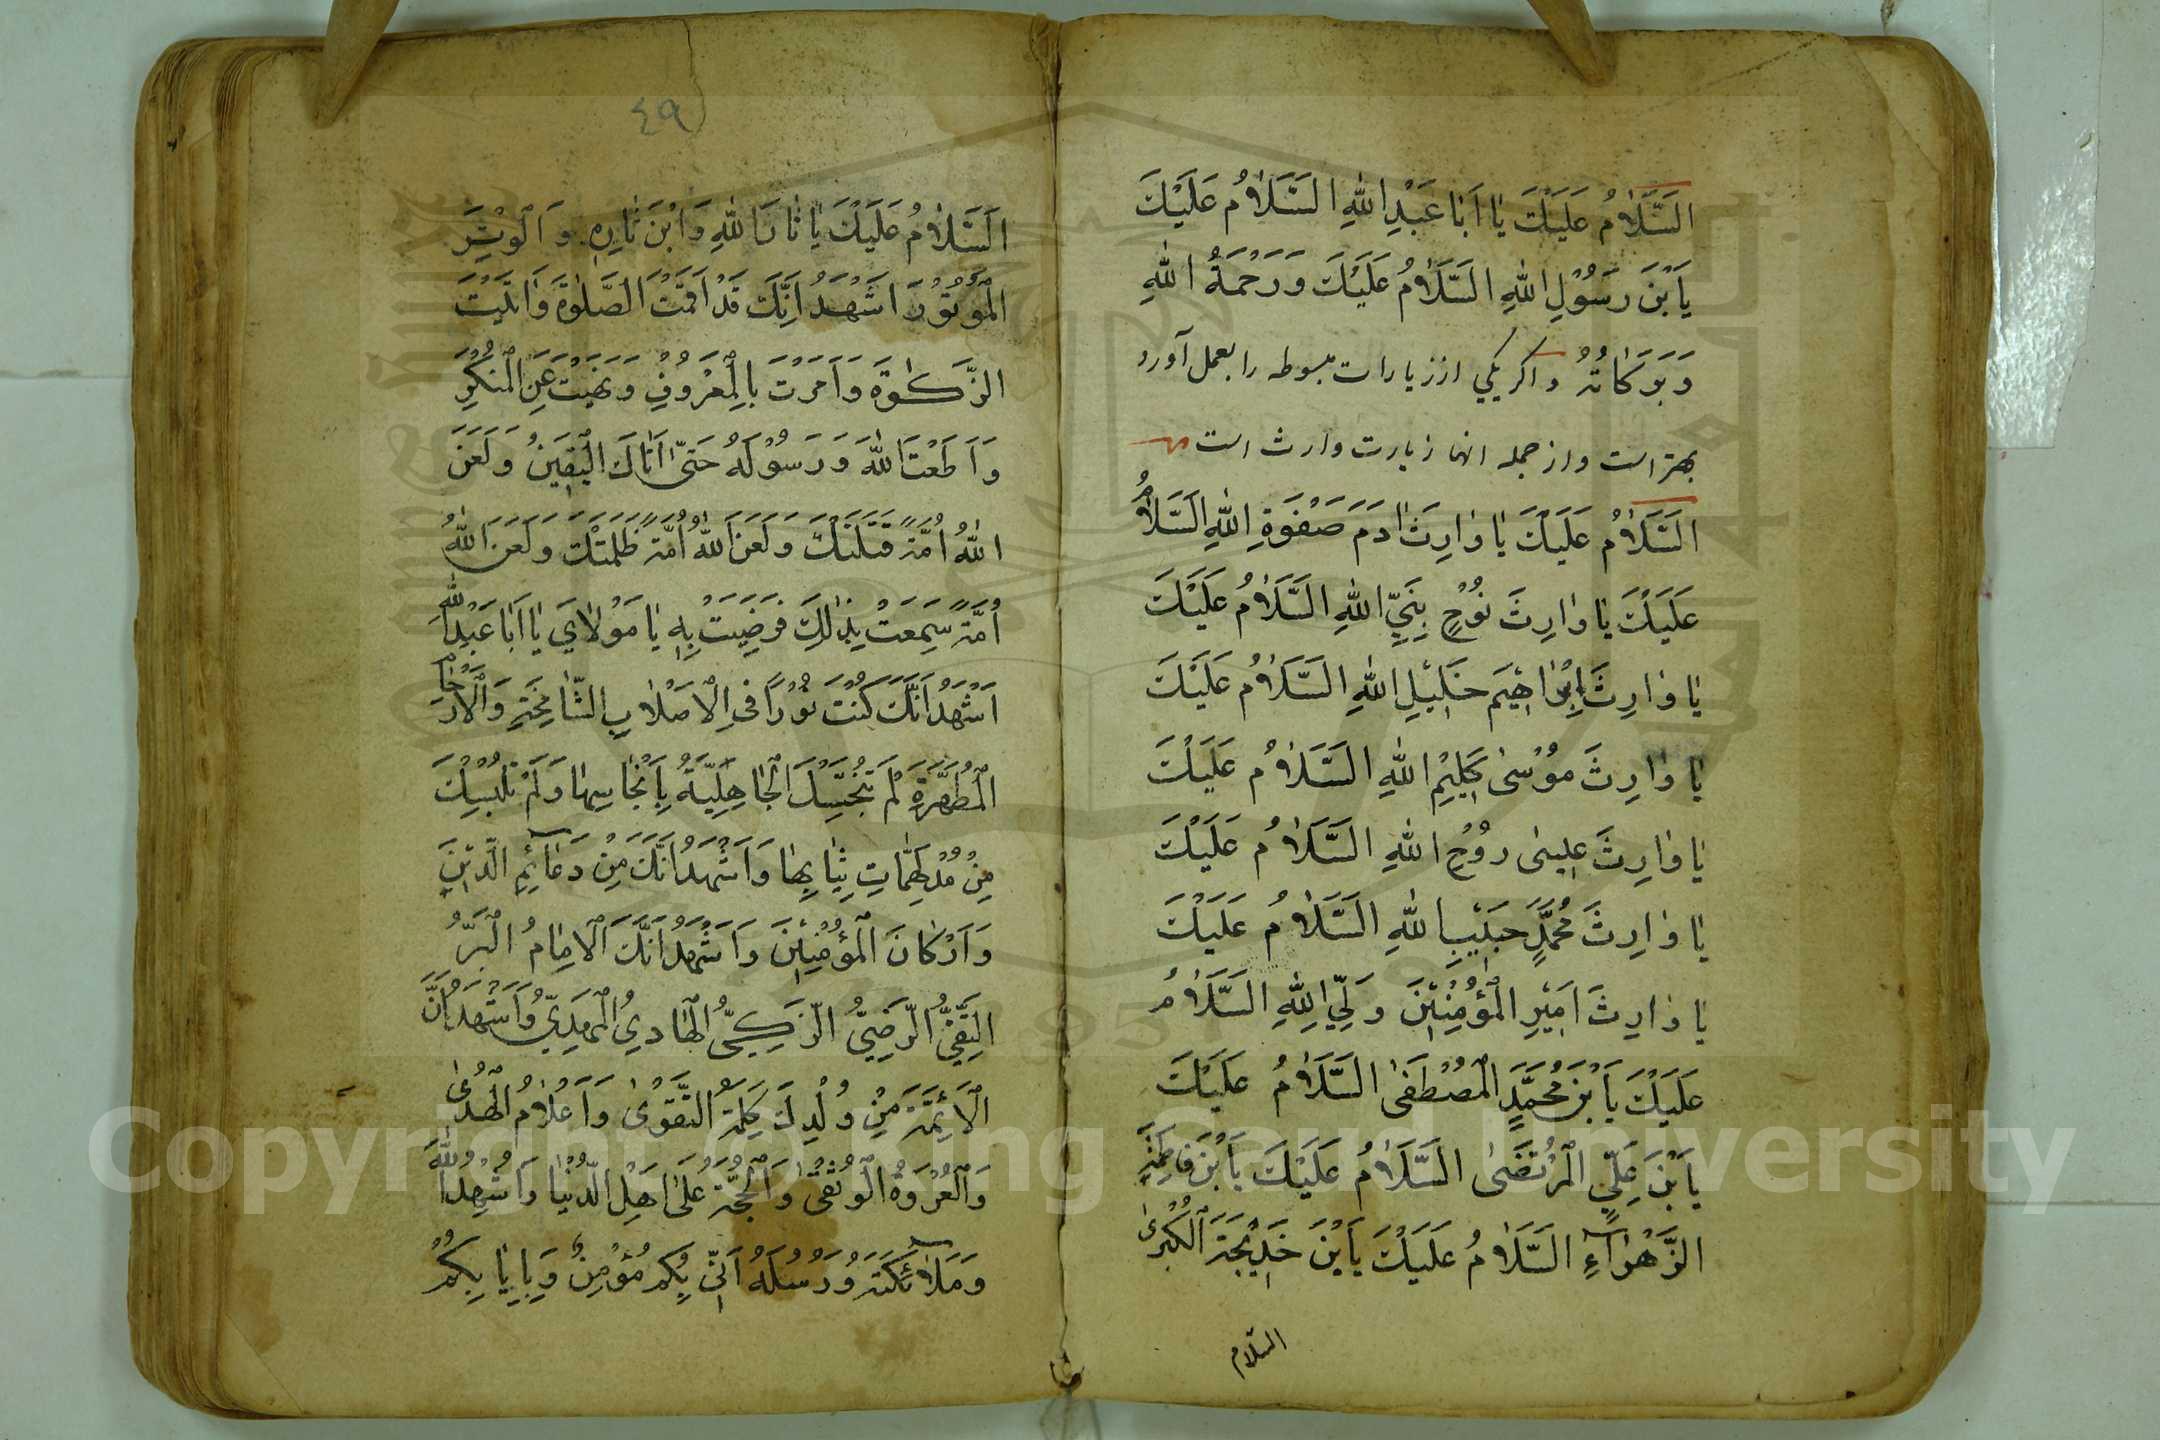 اَلسَّلَامُ عَلَيْكَ يَا اَبَا عَبْدِ اللهِ السَّلَامُ عَلَيْكَ
يَا بْنَ رَسُوْلِ اللهِ السَّلَامُ عَلَيْكَ وَ رَحْمَةُ اللهِ
وَ بَرَكَاتُهُ و اكر يكي از زيارات مبسوطه را بعمل آورد
بهتر است و از جمله انها زيارت وارث است
السَّلَامُ عَلَيْكَ يَا وَارِثَ ادَمَ صَفْوَةِ اللهِ السَّلَامُ
عَلَيْكَ يَا وَارِثَ نُوْحٍ نَبِيِّ اللهِ السَّلَامُ عَلَيْكَ
يَا وَارِثَ اِبْرَاهِيْمَ خَلِيْلِ اللهِ السَّلَامُ عَلَيْكَ
يَا وَارِثَ مُوْسٰى كَلِيْمِ اللهِ السَّلَامُ عَلَيْكَ
يَا وَارِثَ عِيسٰى رُوْحِ اللهِ السَّلَامُ عَلَيْكَ
يَا وَارِثَ مُحَمَّدٍ حَبِيْبِ اللهِ السَّلَامُ عَلَيْكَ
يَا وَارِثَ اَمِيْرِ الْمُؤْمِنِيْنَ وَلِيِّ اللهِ السَّلَامُ
عَلَيْكَ يَا بْنَ مُحَمَّدٍ الْمُصْطَفٰى السَّلَامُ عَلَيْكَ
يَا بْنَ عَلِيٍّ الْمُرْتَضٰى السَّلَامُ عَلَيْكَ يَا بْنَ فَاطِمَةَ
الزَّهْرَآءِ السَّلَامُ عَلَيْكَ يَا بْنَ خَدِيْجَةَ الْكُبْرٰى
السّلام
٤٩
اَلسَّلَامُ عَلَيْكَ يَا ثَارَ اللهِ وَ ابْنَ ثَارِهِ وَ الْوِتْرَ
الْمَوْتُوْرَ اَشْهَدُ اَنَّكَ قَدْ اَقَمْتَ الصَّلٰوةَ وَ اٰتَيْتَ
الزَّكٰوةَ وَ اَمَرْتَ بِالْمَعْرُوْفِ وَ نَهَيْتَ عَنِ الْمُنْكَرِ
وَ اَطَعْتَ اللهَ وَ رَسُوْلَهُ حَتّٰى اَتَاكَ الْيَقِيْنُ وَ لَعَنَ
اللهُ اُمَّةً قَتَلَتْكَ وَ لَعَنَ اللهُ اُمَّةً ظَلَمَتْكَ وَ لَعَنَ اللهُ
اُمَّةً سَمِعَتْ بِذٰلِكَ فَرَضِيَتْ بِهِ يَا مَوْلَايَ يَا اَبَا عَبْدِ اللهِ
اَشْهَدُ اَنَّكَ كُنْتَ نُوْرًا فِى الْاَصْلَابِ الشَّامِخَةِ وَ الْاَرْحَامِ
الْمُطَهَّرَةِ لَمْ تُنَجِّسْكَ الْجَاهِلِيَّةُ بِاَنْجَاسِهَا وَ لَمْ تُلْبِسْكَ
مِنْ مُدْلَهِمَّاتِ ثِيَابِهَا وَ اَشْهَدُ اَنَّكَ مِنْ دَعَآئِمِ الدِّيْنِ
وَ اَرْكَانِ الْمُؤْمِنِيْنَ وَ اَشْهَدُ اَنَّكَ الْاِمَامُ الْبَرُّ
التَّقِيُّ الرَّضِيُّ الزَّكِيُّ الْهَادِيُ الْمَهْدِيُّ وَ اَشْهَدُ اَنَّ
الْاَئِمَّةَ مِنْ وُلْدِكَ كَلِمَةُ التَّقْوٰى وَ اَعْلَامُ الْهُدٰى
وَ الْعُرْوَةُ الْوُثْقٰى وَ الْحُجَّةُ عَلٰى اَهْلِ الدُّنْيَا وَ اُشْهِدُ اللهَ
وَ مَلَآئِكَتَهُ وَ رُسُلَهُ اَنِّى بِكُمْ مُؤْمِنٌ وَ بِاِيَابِكُمْ
Copyright © King Saud University